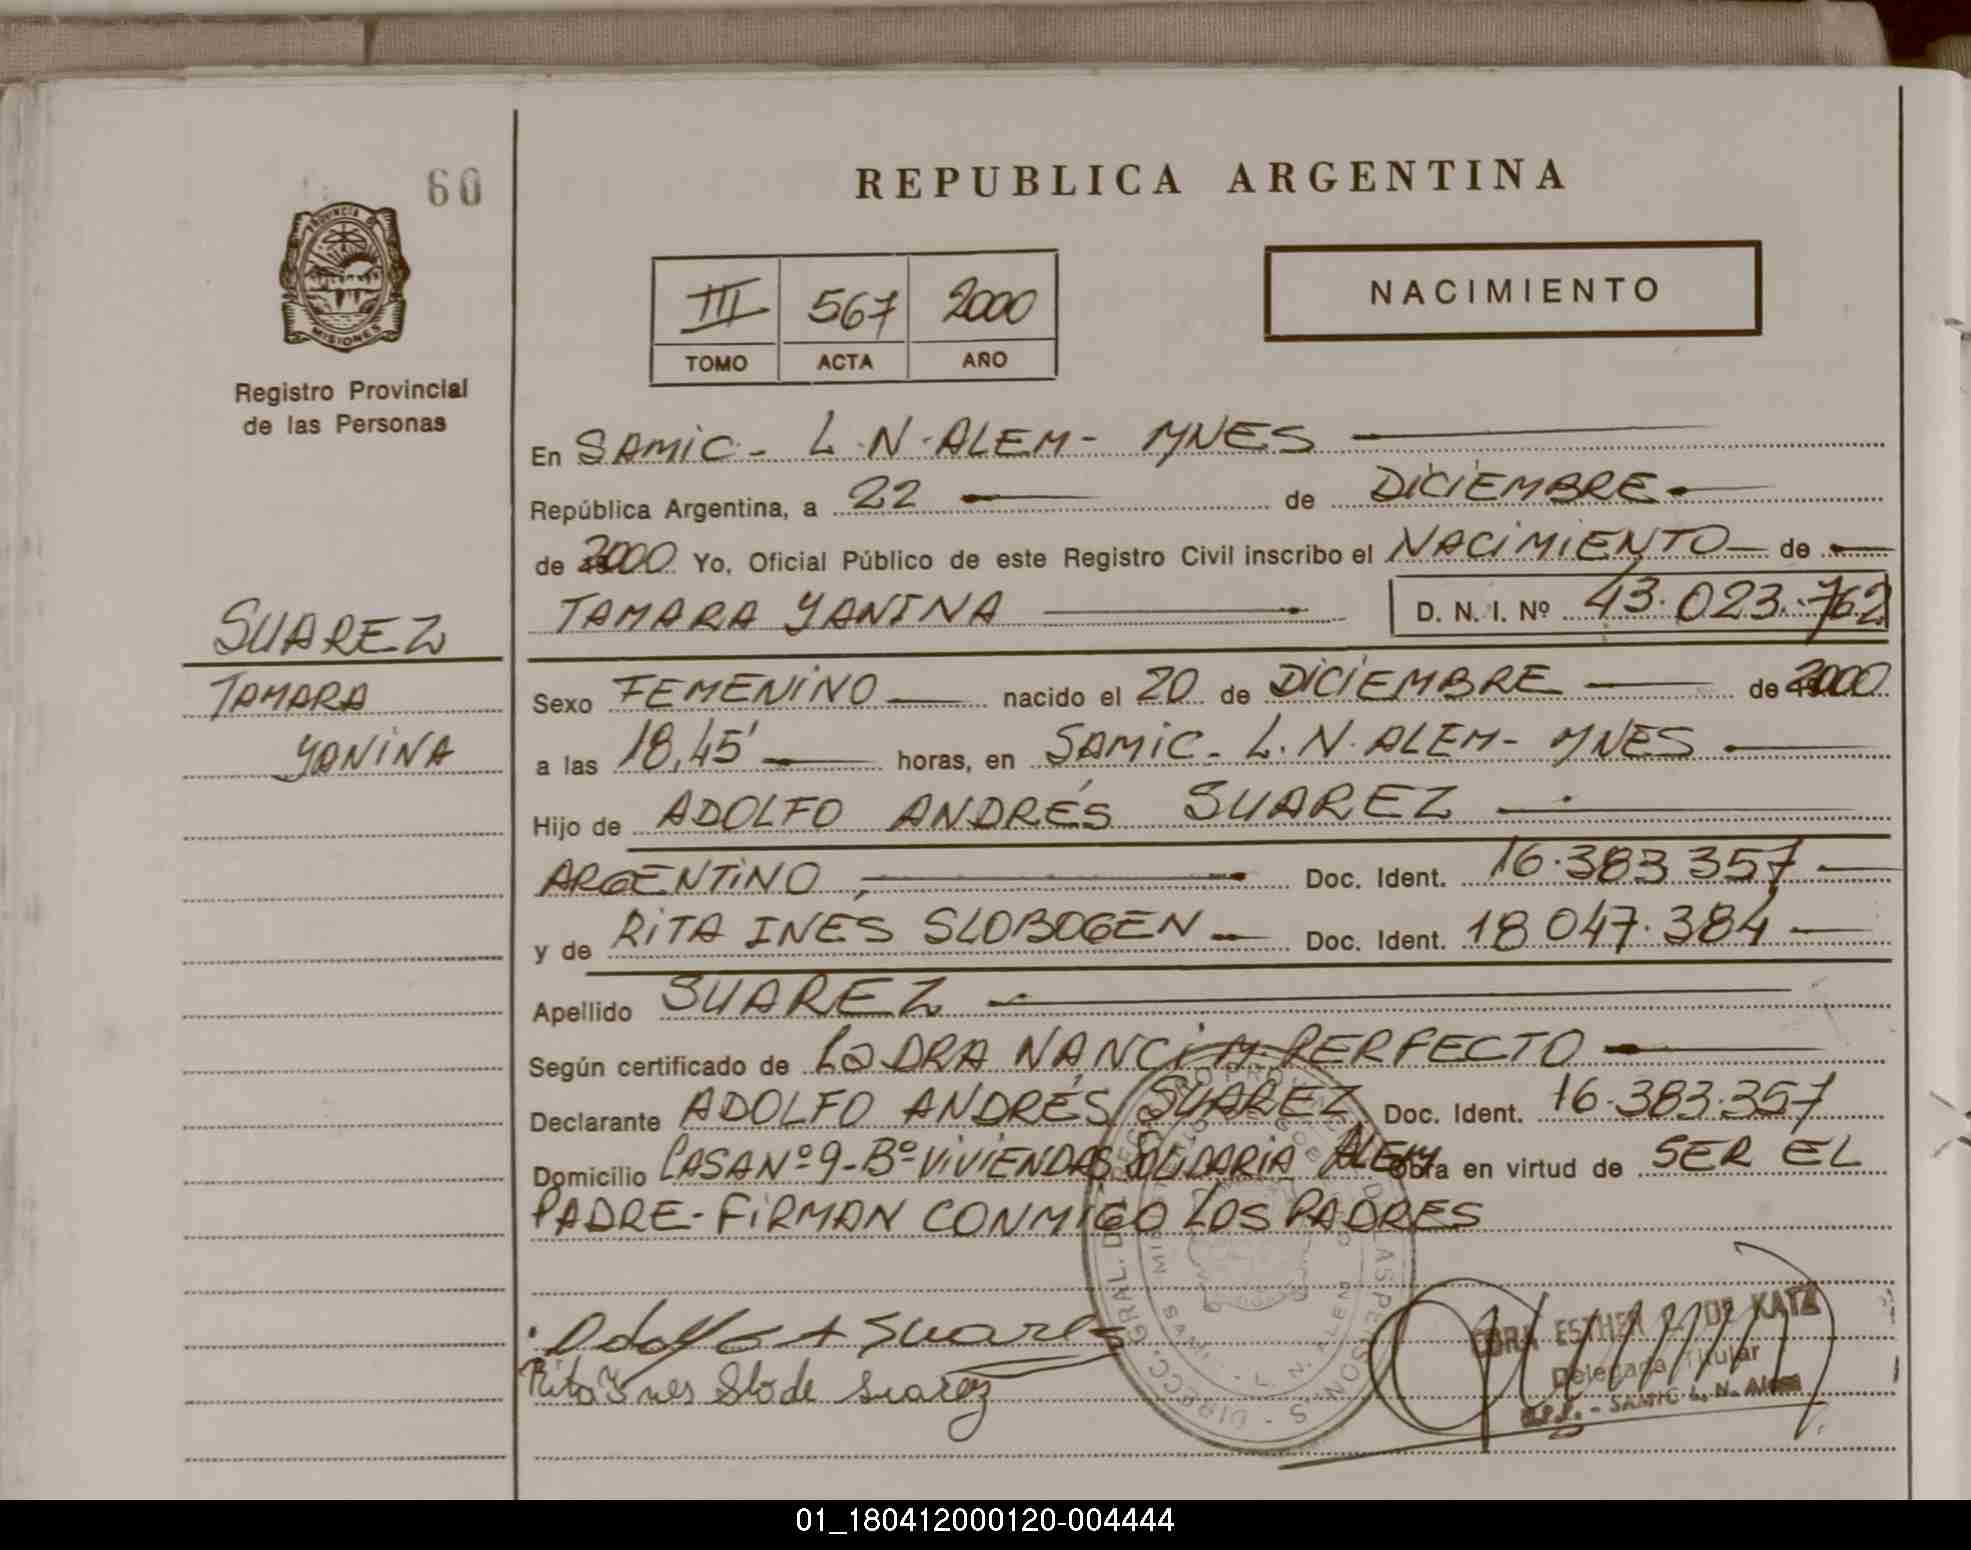 60
REPUBLICA ARGENTINA
PROVINCIA D
MISIONES
Registro Provincial
de las Personas
III 567 2000
TOMO ACTA AÑO
NACIMIENTO
En SAMIC - L.N. ALEM - MNES
República Argentina, a 22 de DICIEMBRE
de 2000 Yo, Oficial Público de este Registro Civil inscribo el NACIMIENTO de
TAMARA YANINA D. N. I. Nº 43.023.762
SUAREZ
TAMARA
YANINA
Sexo FEMENINO nacido el 20 de DICIEMBRE de 2000
a las 18,45' horas, en SAMIC - L.N. ALEM - MNES
Hijo de ADOLFO ANDRÉS SUAREZ
ARGENTINO, Doc. Ident. 16.383.357
y de RITA INÉS SLOBOGEN Doc. Ident. 18.047.384
Apellido SUAREZ
Según certificado de La DRA NANCI M. PERFECTO
Declarante ADOLFO ANDRÉS SUAREZ Doc. Ident. 16.383.357
Domicilio CASA Nº 9 - Bº VIVIENDAS SOLIDARIA ALEM obra en virtud de SER EL
PADRE - FIRMAN CONMIGO LOS PADRES
Adolfo A Suarez
Rita Ynes Slo de Suarez
ESTHER DE KATZ
Delegada Titular
SAMIC L. N. Alem
01_180412000120-004444